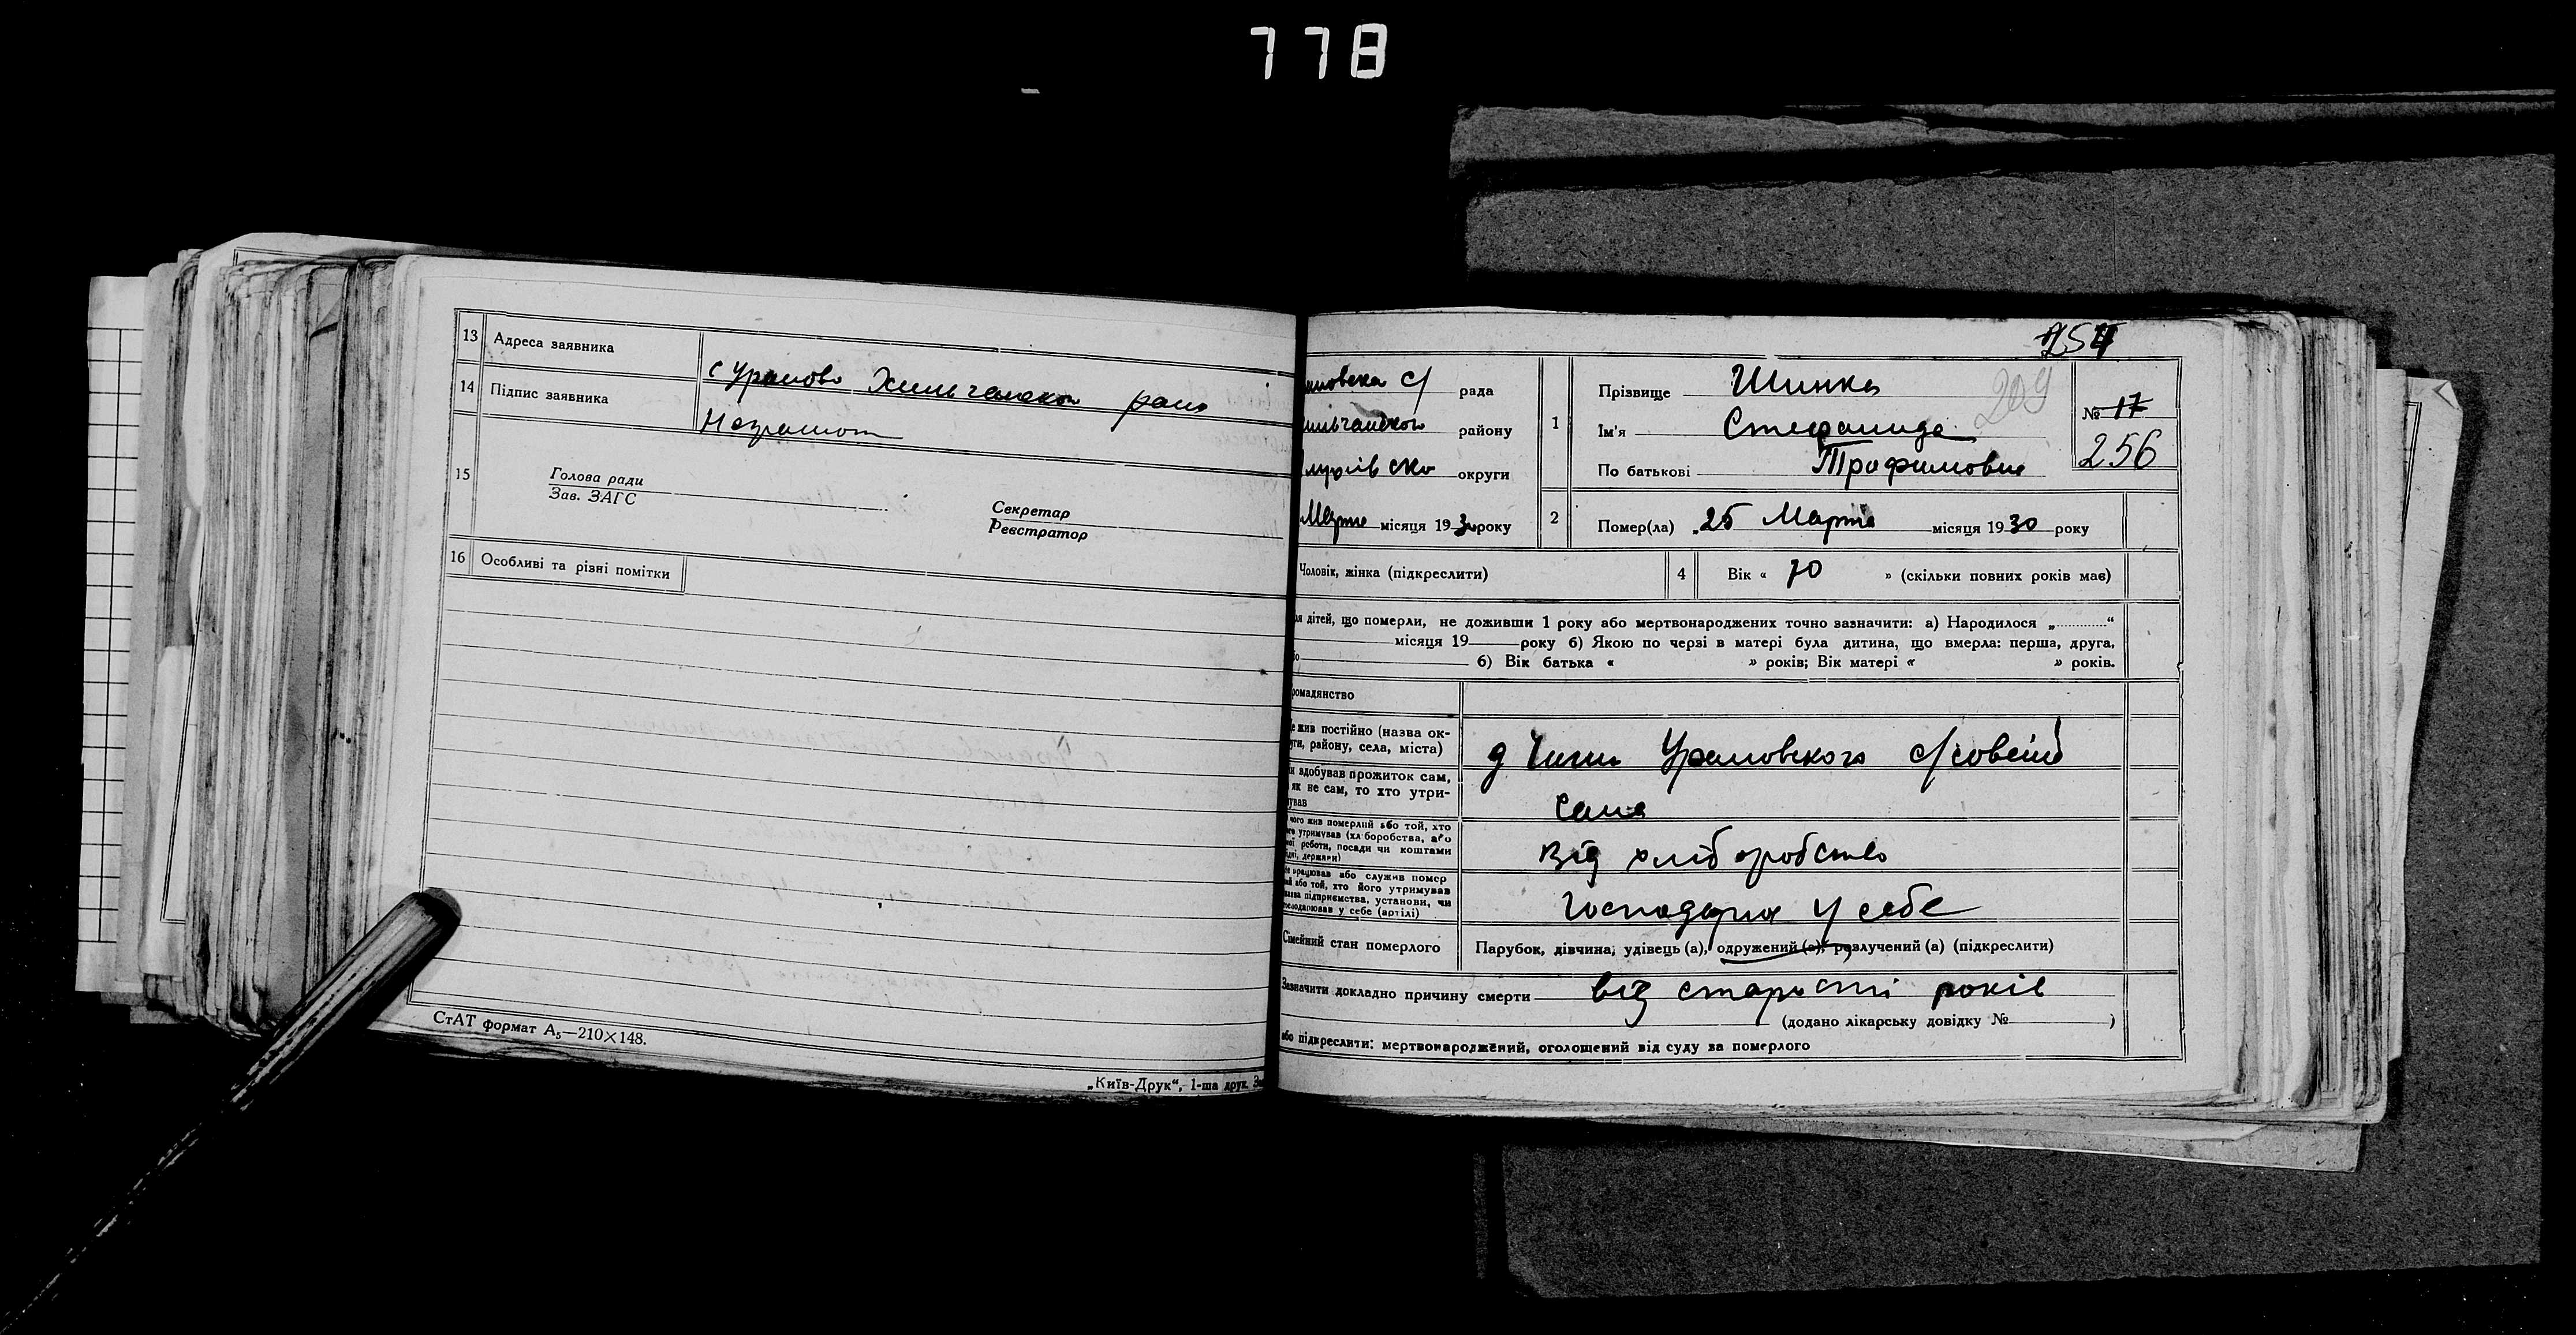 778
13 Адреса заявника
с Урамово Хильчанском рано
14 Підпис заявника
Неграмот
15
Голова ради
Зав. ЗАГС
Секретар
Реєстратор
16 Особливі та різні помітки
СтАТ формат А₅—210×148.
„Київ-Друк“, 1-ша друк. З
254
с/ рада
району
округи
Марта місяця 1930 року
1
Прізвище Шинка
209
Ім'я Стефанида
По батькові Трофимовна
№ 17
256
2 Помер(ла) „25 Марта місяця 1930 року
Чоловік, жінка (підкреслити)
4 Вік « 70 » (скільки повних років має)
ля дітей, що померли, не доживши 1 року або мертвонароджених точно зазначити: а) Народилося „............“
місяця 19 року б) Якою по черзі в матері була дитина, що вмерла: перша, друга,
б) Вік батька « » років; Вік матері « » років.
ромадянство
е жив постійно (назва ок-
уги, району, села, міста)
д Урамовского с/совета
и здобував прожиток сам,
як не сам, то хто утри-
ував
сама
чого жив померлий або той, хто
го утримував (хліборобства, або
ої роботи, посади чи коштами
ідні, держави)
Від хліборобство
е працював або служив помер
ий або той, хто його утримував
назва підприємства, установи, чи
господарював у себе (артілі)
Господарка у себе
Сімейний стан померлого
Парубок, дівчина, удівець (а), одружений (а), розлучений (а) (підкреслити)
Зазначити докладно причину смерти від старости років
(додано лікарську довідку № )
або підкреслити: мертвонароджений, оголошений від суду за померлого